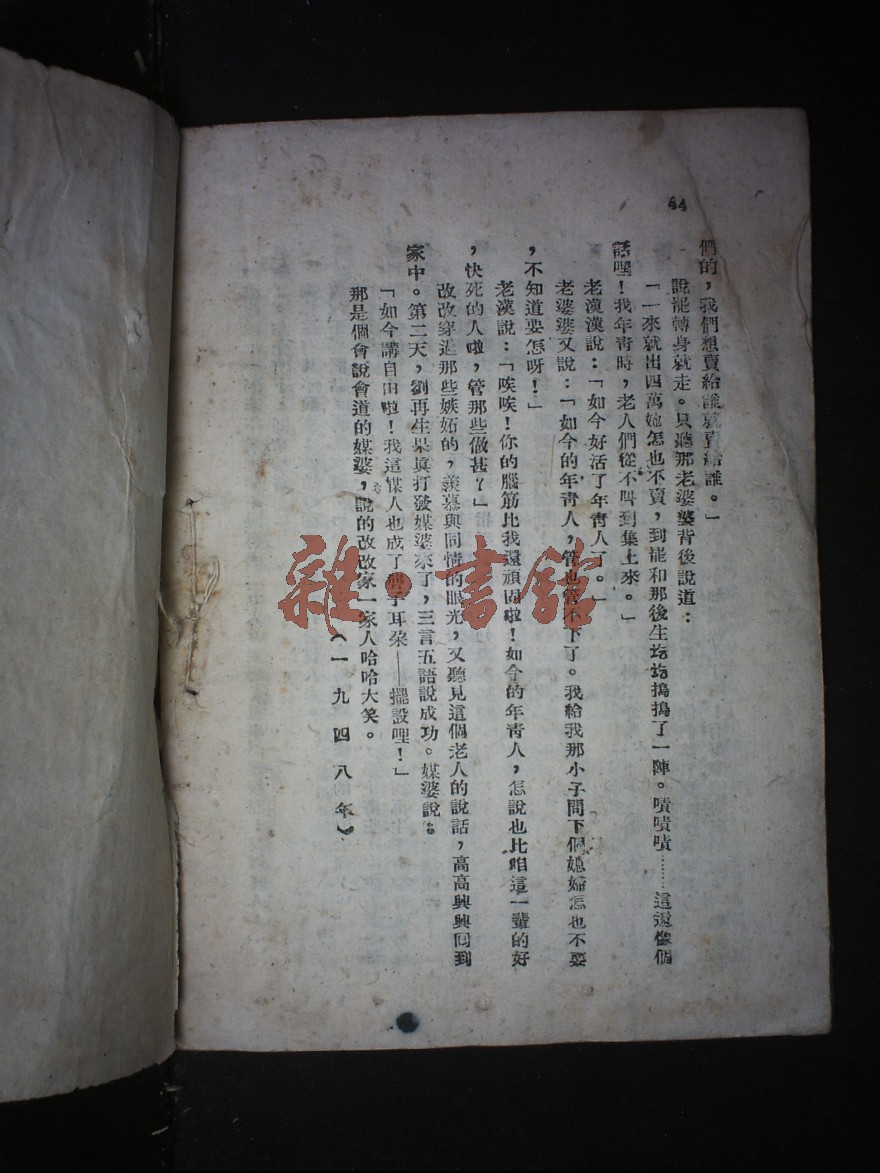 44
們的，我們想賣給誰就賣給誰。」
說罷轉身就走。只聽那老婆婆背後說道：
「一來就出四萬她怎也不賣，到罷和那後生圪圪搗搗了一陣。嘖嘖嘖……這還像個
話哩！我年靑時，老人們從不叫到集上來。」
老漢漢說：「如今好活了年靑人了。」
老婆婆又說：「如今的年靑人，管也管不下了。我給我那小子問下個媳婦怎也不要
，不知道要怎呀！」
老漢說：「唉唉！你的腦筋比我還頑固啦！如今的年靑人，怎說也比咱這一輩的好
，快死的人啦，管那些做甚？」
改改穿過那些嫉妬的，羨慕與同情的眼光，又聽見這個老人的說話，高高興興囘到
家中。第二天，劉再生果眞打發媒婆來了，三言五語說成功。媒婆說：
「如今講自由啦！我這媒人也成了聾子耳朶——擺設哩！」
那是個會說會道的媒婆，說的改改家一家人哈哈大笑。
（一九四八年）
雜·書館